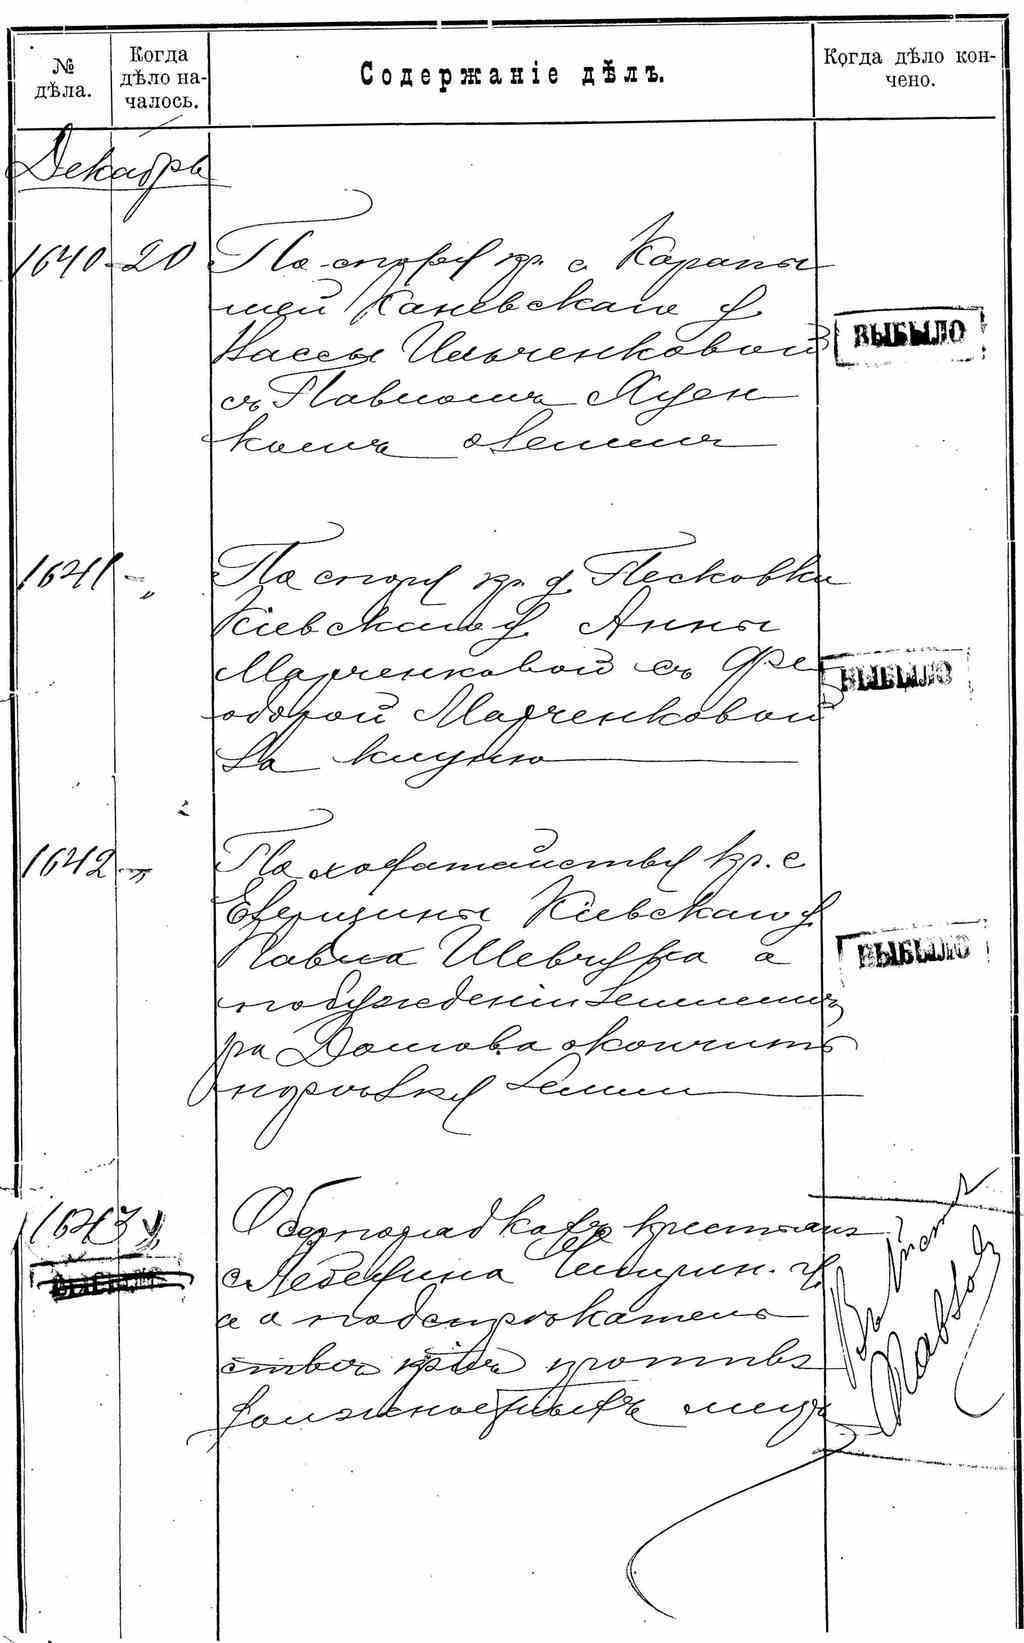 № дѣла.
Когда дѣло началось.
Содержаніе дѣлъ.
Когда дѣло кончено.
Декабрь
1640 - 20 По спору кр. с. Карапы
шей Каневскаго у.
Вассы Ильченковой
съ Павломъ Яцен
комъ о землѣ
ВЫБЫЛО
1641 - „ По спору кр. д. Песковки
Кіевскаго у. Анны
Марченковой съ Фе
одорой Марченковой
за клуню
ВЫБЫЛО
1642 - „ По ходатайству кр. с.
Кіевскаго у.
Павла Шевчука о
побужденіи землемѣ
ра Домова окончить
нарѣзку земли
ВЫБЫЛО
1643 „ О безпорядкахъ крестьян
с. Лебедина Чигирин. у.
и о подстрекатель
ствѣ кр. противъ
должностныхъ лицъ
ВЫБЫЛО